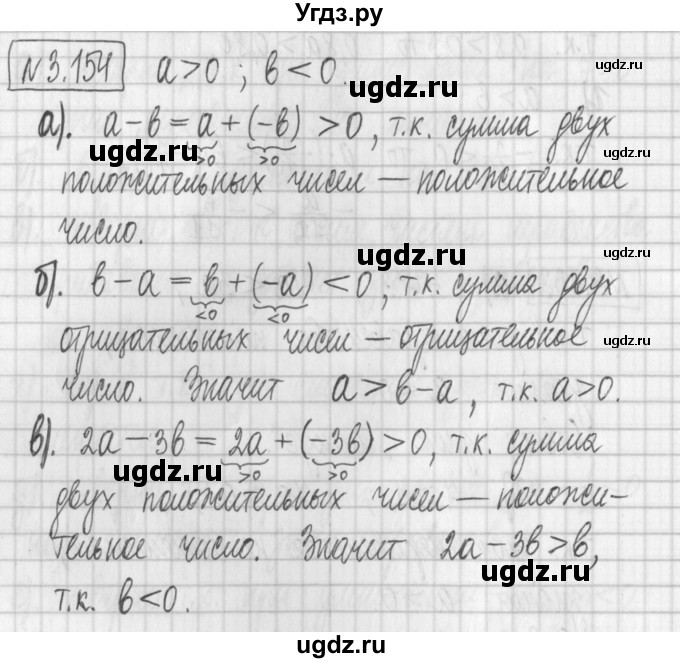 Угдз.ру
№3.154 a>0 ; в<0.
ugdz.ru
а). a-в = a + (-в) >0, т.к. сумма двух
>0 >0
ugdz.ru ugdz.ru
положительных чисел — положительное
число.
ugdz.ru ugdz.ru
б). в-a = в + (-a) <0, т.к. сумма двух
<0 <0
ugdz.ru
отрицательных чисел — отрицательное
ugdz.ru
число. Значит a>в-a, т.к. a>0.
ugdz.ru
в). 2a-3в = 2a + (-3в) >0, т.к. сумма
>0 >0
ugdz.ru ugdz.ru
двух положительных чисел — положи-
тельное число. Значит 2a-3в>в,
ugdz.ru ugdz.ru
т.к. в<0.
ugdz.ru